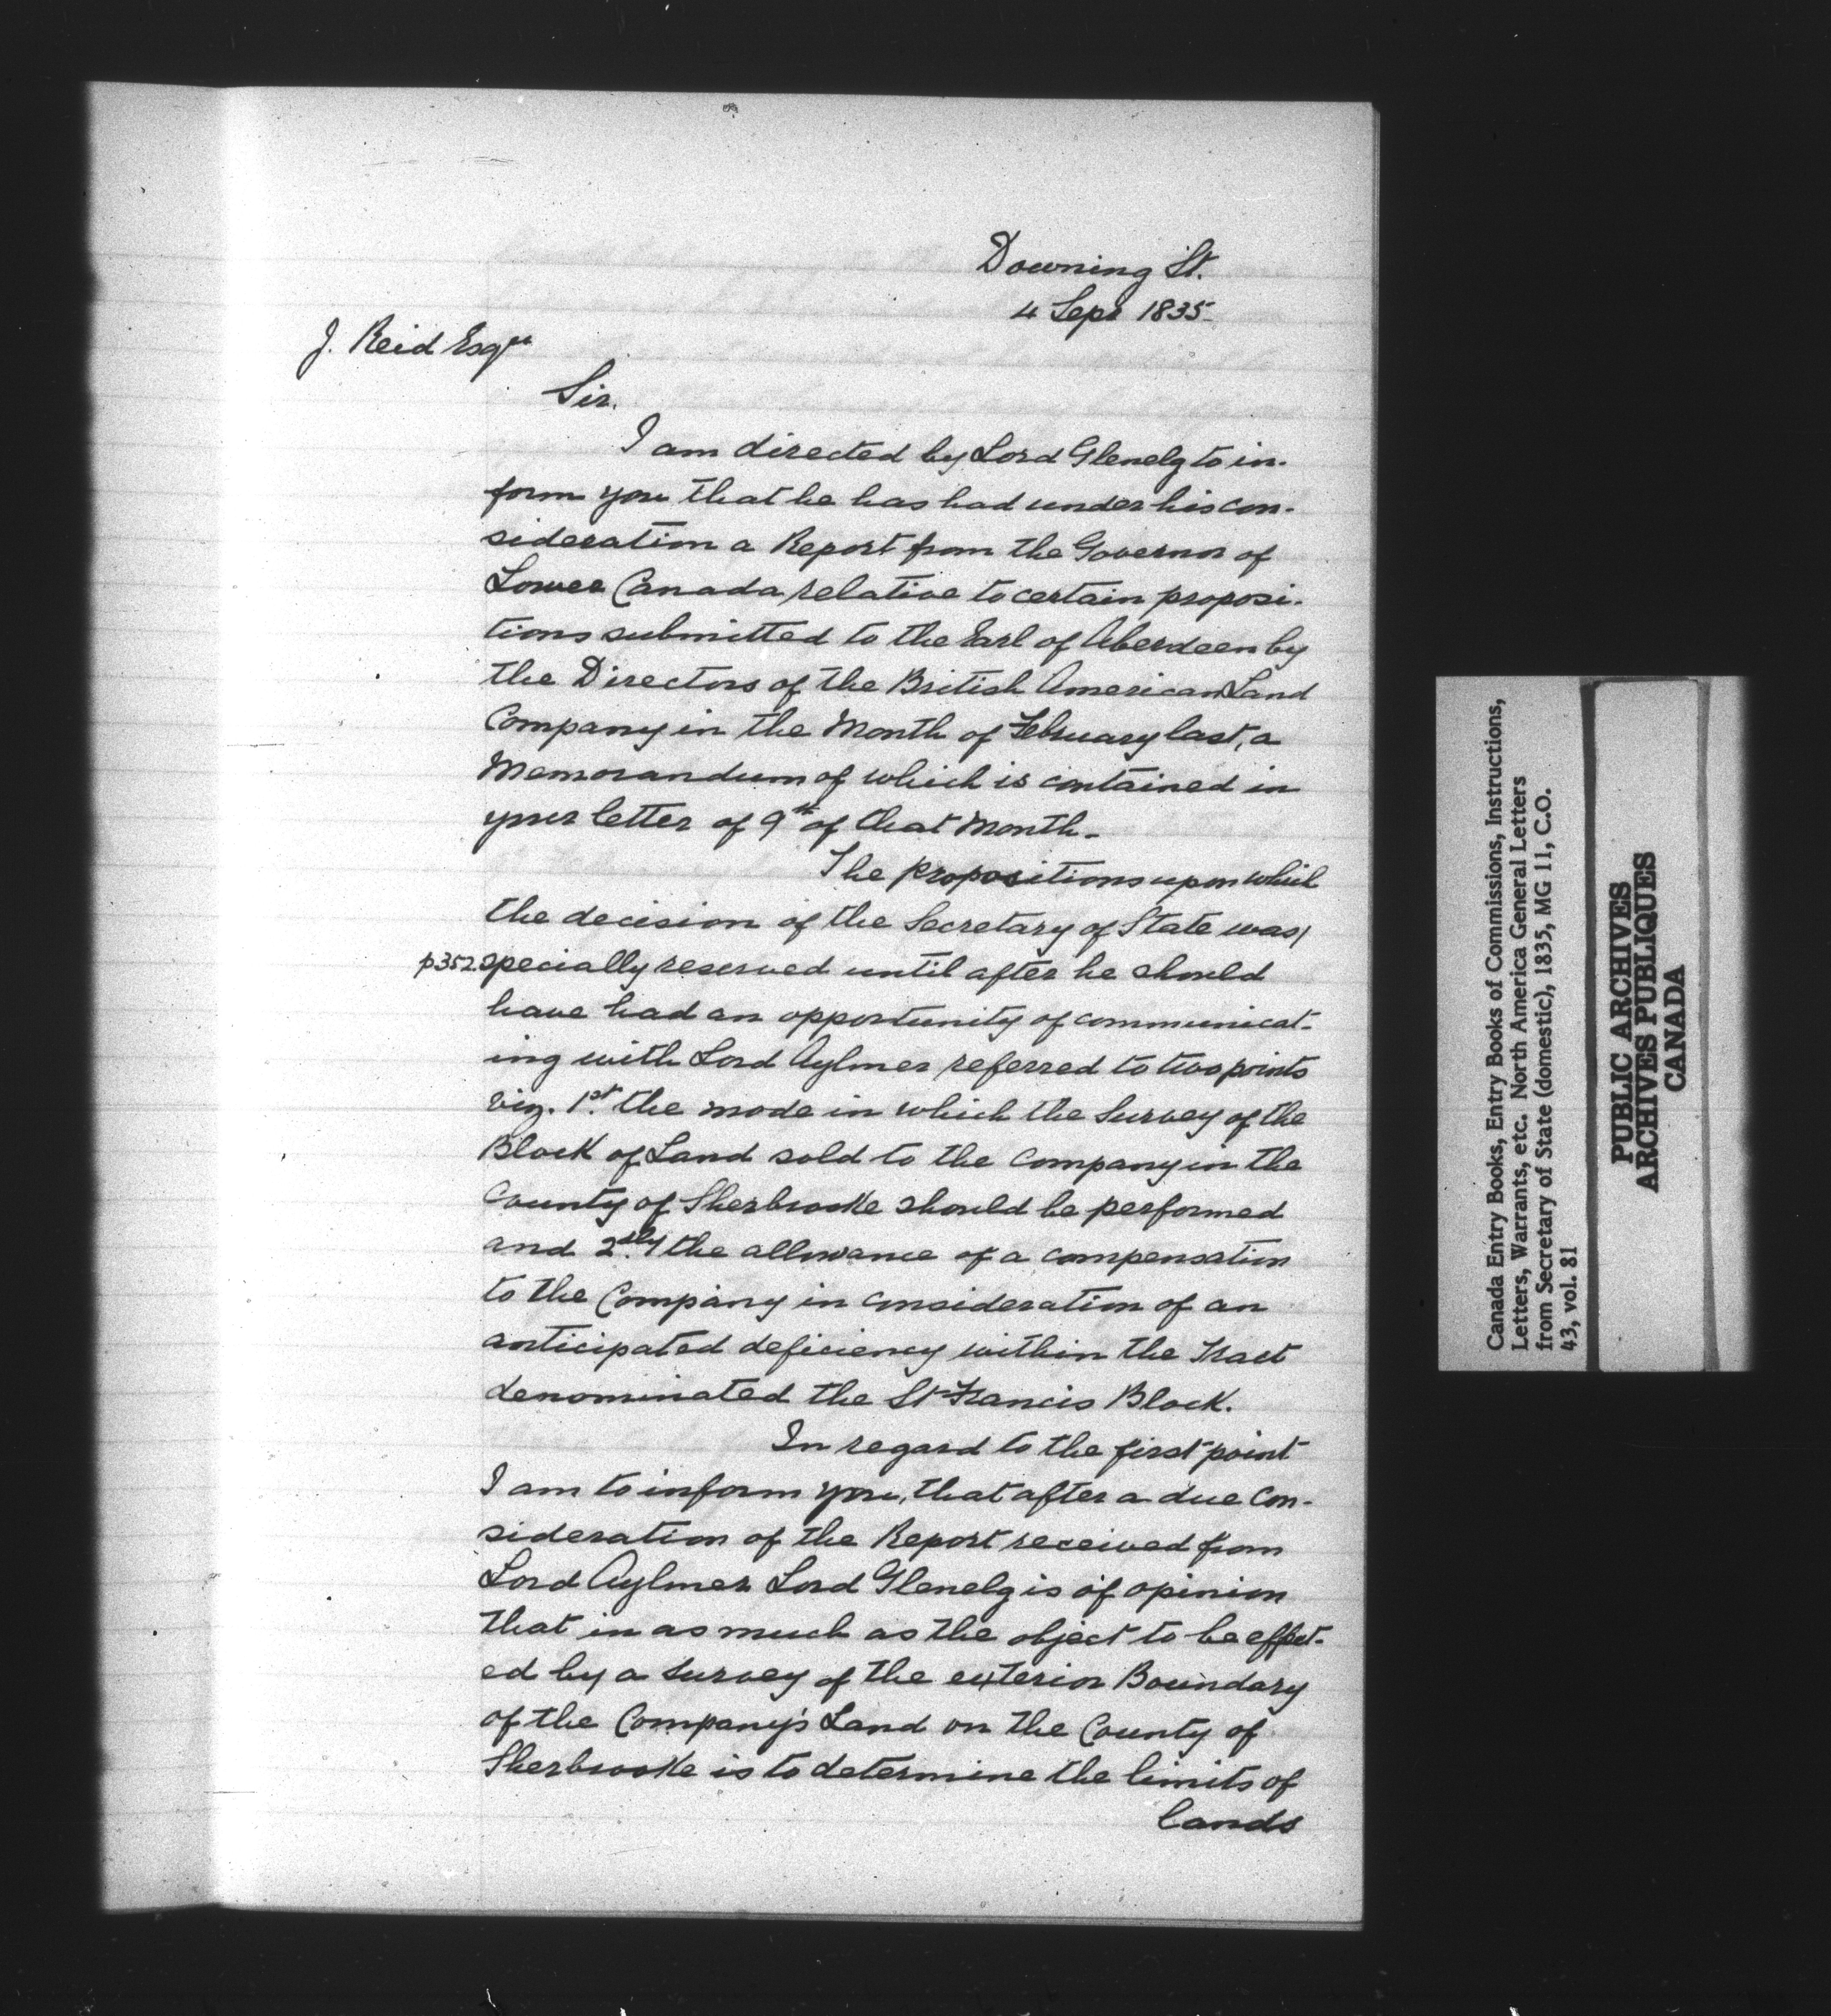 Downing St.
4 Sept 1835
J. Reid Esqre
Sir.
I am directed by Lord Glenelg to in-
form you that he has had under his con-
sideration a Report from the Governor of
Lower Canada relative to certain proposi-
tions submitted to the Earl of Aberdeen by
the Directors of the British American Land
Company in the Month of February last, a
Memorandum of which is contained in
your letter of 9th of that Month-
The propositions upon which
the decision of the Secretary of State was/
p352 specially reserved until after he should
have had an opportunity of communicat-
ing with Lord Aylmer referred to two points
viz. 1st. the mode in which the Survey of the
Block of Land sold to the Company in the
County of Sherbrooke should be performed
and 2dly the allowance of a compensation
to the Company in consideration of an
anticipated deficiency within the Tract
denominated the St Francis Block.
In regard to the first point
I am to inform you, that after a due con-
sideration of the Report received from
Lord Aylmer Lord Glenelg is of opinion
that in as much as the object to be effect-
ed by a survey of the exterior Boundary
of the Company's Land on the County of
Sherbrooke is to determine the limits of
lands
Canada Entry Books, Entry Books of Commissions, Instructions,
Letters, Warrants, etc. North America General Letters
from Secretary of State (domestic), 1835, MG 11, C.O.
43, vol. 81
PUBLIC ARCHIVES
ARCHIVES PUBLIQUES
CANADA